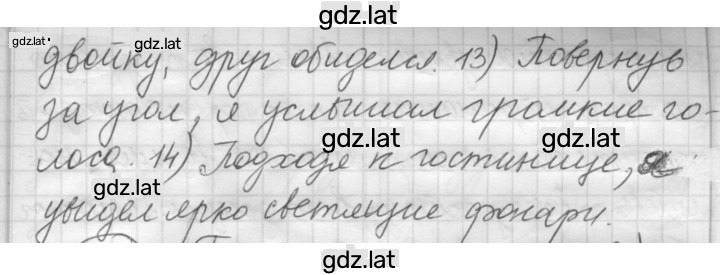 gdz.lat
gdz.lat gdz.lat
двойку, друг обиделся. 13) Повернув
за угол, я услышал громкие го-
gdz.lat gdz.lat
лоса. 14) Подходя к гостинице, я
gdz.lat
увидел ярко светящие фонари.
gdz.lat